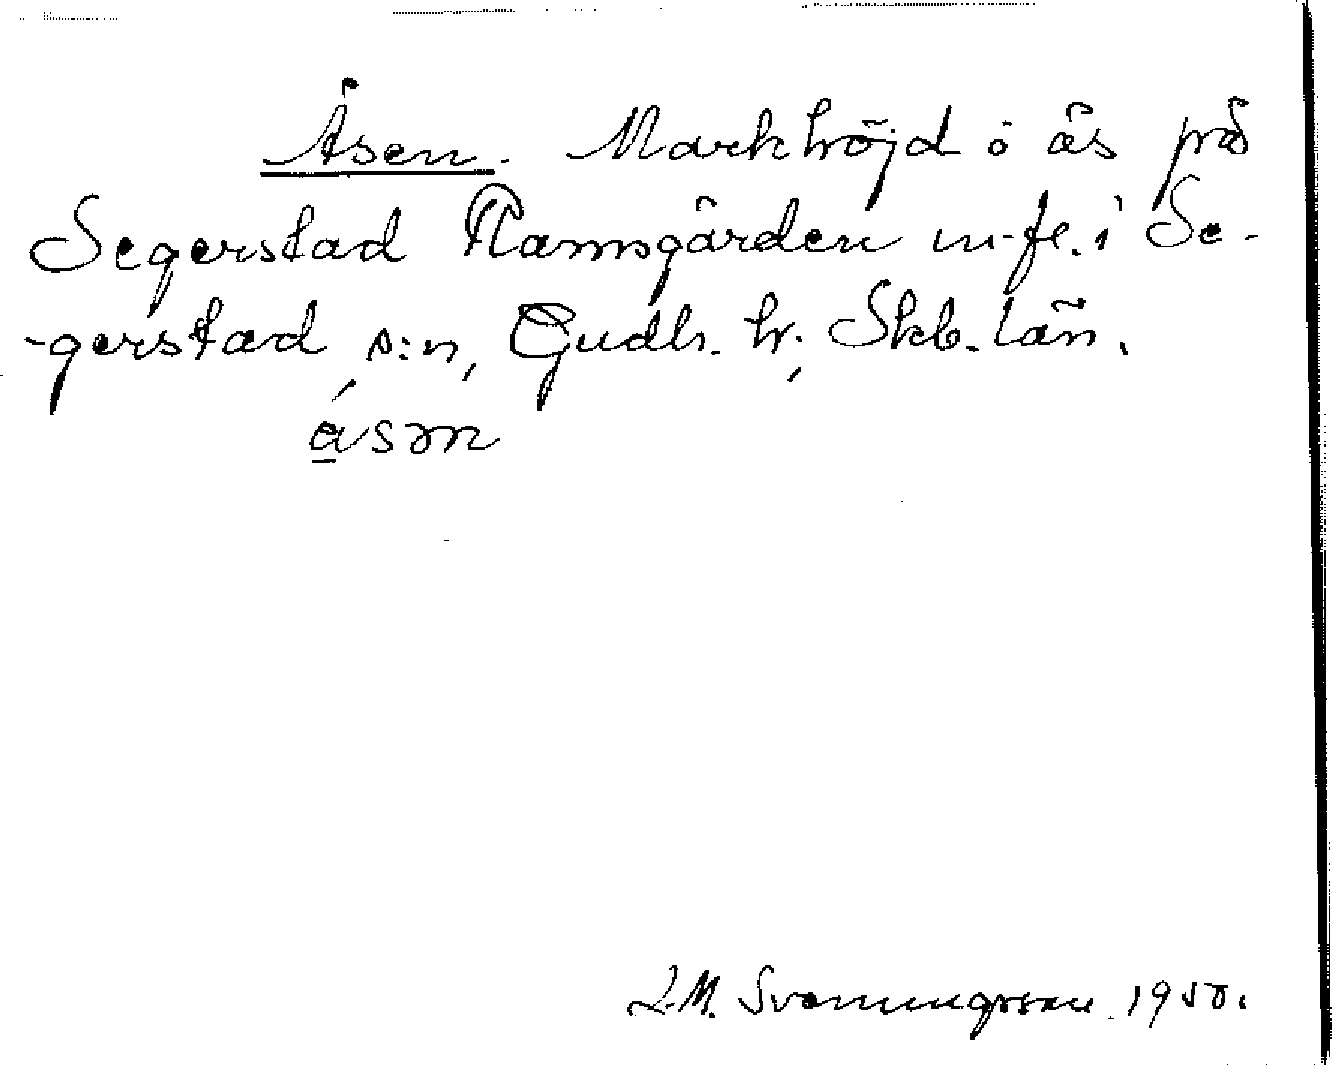 Åsen. Markhöjd o ås på
Segerstad Ramsgården m. fl. i Se-
-gerstad s:n, Gudh. hr, Skb. län.
ásən
J. M. Svenungsson 1950.